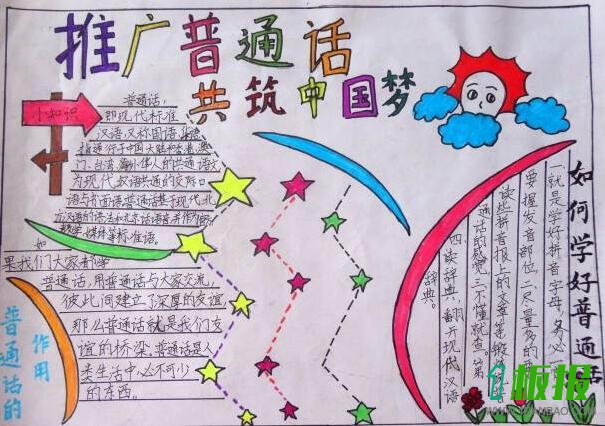 推广普通话
共筑中国梦
小知识
普通话，
即现代标准
汉语,又称国语、华语
指通行于中国大陆和香港、澳
门、台湾、海外华人的共通语文
为现代汉语共通的交际口
语与书面语普通话基于现代北
方汉语的语法和北京话语音并作为
教学、媒体等标准语。
如
果我们大家都学
普通话,用普通话与大家交流,
彼此间建立了深厚的友谊
那么普通话就是我们友
谊的桥梁。普通话是人
类生活中,必不可少
的东西。
普通话的
作用
如何学好普通话
一、就是学好拼音字母,务必
要把握发音部位。二、尽量多的
读些拼音报上的文章等锻炼
通话的感觉。三、不懂就查。第
四、读辞典,翻开现代汉语
辞典。
板报